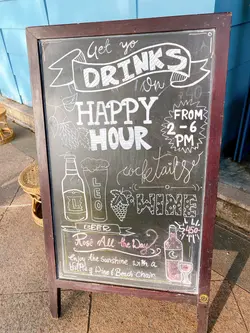 Get yo
DRINKS
on
HAPPY
HOUR
FROM
2-6
PM
cocktails
WINE
BEER
Rosé All the Day
Enjoy the sunshine with a